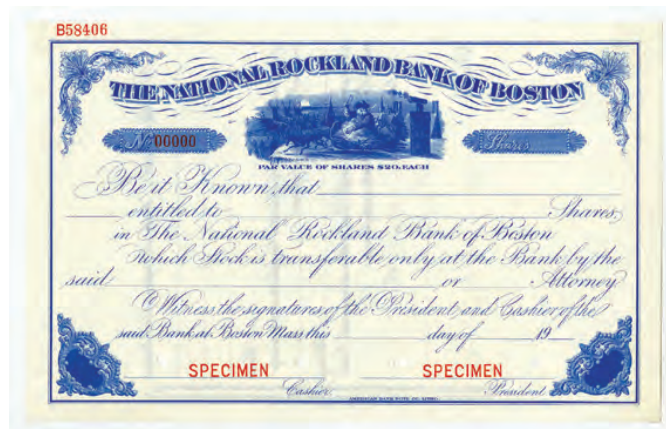 B58406
THE NATIONAL ROCKLAND BANK OF BOSTON
No 00000 Shares
PAR VALUE OF SHARES $20. EACH
Be it Known, that
entitled to Shares
in The National Rockland Bank of Boston
which Stock is transferable only at the Bank by the
said or Attorney
Witness the signatures of the President and Cashier of the
said Bank at Boston Mass this day of 19
SPECIMEN SPECIMEN
Cashier. President
AMERICAN BANK NOTE CO.